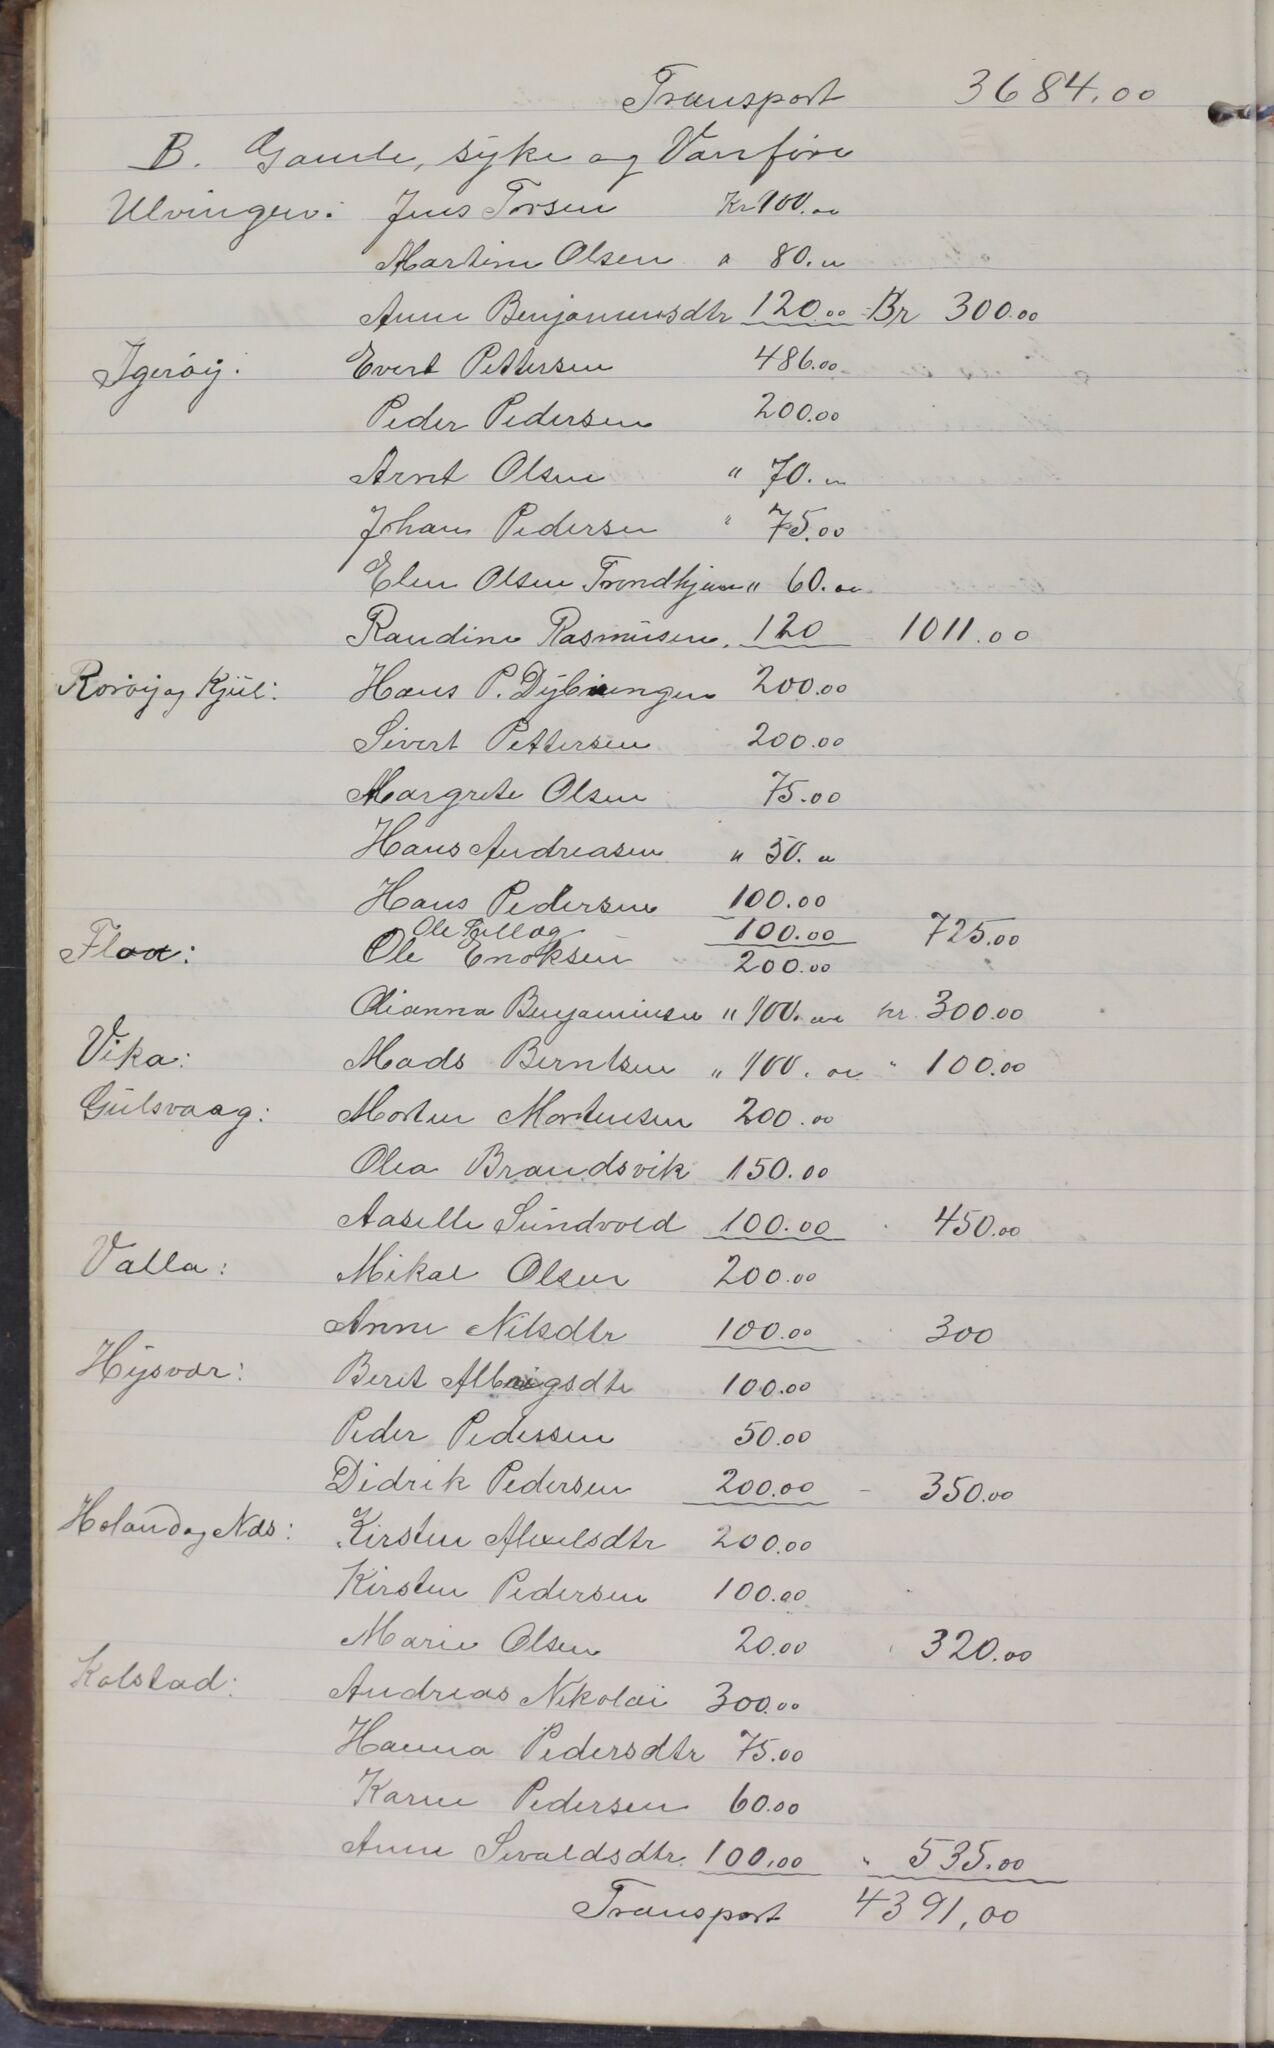 Transport 3684.00
B. Gamle, syke og Vanføre
Ulvingen: Jens Torsen Kr 100.00
Martine Olsen " 80.00
Anne Benjaminsdtr 120.00 Kr 300.00
Igerøy: Evert Pettersen 486.00
Peder Pedersen 200.00
Arnt Olsen " 70.00
Johan Pedersen " 75.00
Elen Olsen Trondhjem " 60.00
Randine Rasmüsen 120 1011.00
Rorøy og Kjül: Hans P. Dybvungen 200.00
Sivert Pettersen 200.00
Margrete Olsen 75.00
Hans Andreasen " 50.00
Hans Pedersen 100.00
Ole Fellag 100.00 725.00
Floa: Ole Enoksen 200.00
Dianna Benjaminsen " 100.00 Kr. 300.00
Vika: Mads Berntsen " 100.00 " 100.00
Gülsvaag: Morten Mortensen 200.00
Olea Brandsvik 150.00
Aaselle Sündvold 100.00 450.00
Valla: Mikal Olsen 200.00
Anne Nilsdtr 100.00 300
Hysvær: Berit Albrigsdtr 100.00
Peder Pedersen 50.00
Didrik Pedersen 200.00 - 350.00
Holand og Nds: Kirsten Axelsdtr 200.00
Kirsten Pedersen 100.00
Marie Olsen 20.00 320.00
Kolstad: Andreas Nikolai 300.00
Hanna Pedersdtr 75.00
Karen Pedersen 60.00
Anne Sivaldsdtr. 100.00 " 535.00
Transport 4391,00